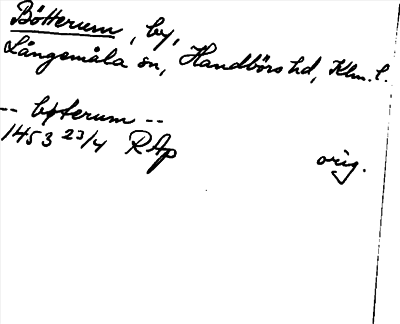 Bötterum, by,
Långemåla sn, Handbörs hd, Klm. l.
-- bøterum --
1453 23/4 RAp orig.